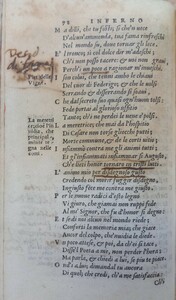 INFERNO
M a dilli, chi tu fosti, si che'n uece
D'alcuna ammenda, tua fama rinfreschi
Nel mondo su, doue tornar gli lece.
E 'l tronco; si col dolce dir m'adeschi,
Ch'i non posso tacere: e uoi non graui
Perch'i un poco a ragionar m'inueschi.
I son colui, che tenni ambo le chiaui
Del cuor di Federigo, e che le uolsi
Serrando e disserrando si soaui,
Che dal secreto suo quasi ogni huom tolsi:
Fede portai al glorioso offitio
Tanto, ch'i ne perdei le uene e i polsi.
La meretrice; che mai da l'hospitio
Di Cesare non torse gliocchi putti
Morte commune, e de le corti uitio
Infiammò contra me gli animi tutti,
E gl'infiammati infiammar si Augusto;
Ch'e lieti honor tornaro in tristi lutti.
L' animo mio per disdegnoso gusto
Credendo col morir fuggir disdegno
Ingiusto fece me contra me giusto.
Per le noue radici d'esto legno
Vi giuro, che giamai non ruppi fede
Al mi' Signor, che fu d'honor si degno.
E se di uoi alcun nel mondo riede;
Conforti la memoria mia; che giace
Ancor del colpo, che'nuidia le diede.
V n poco attese, e poi, da ch'ei si tace,
Disse'l Poeta a me, non perder l'hora;
Ma parla, e chiedi a lui, se piu ti piace.
O nd'io a lui, dimandal tu ancora
Di quel; che credi, ch'a me satisfaccia:
Ch'i